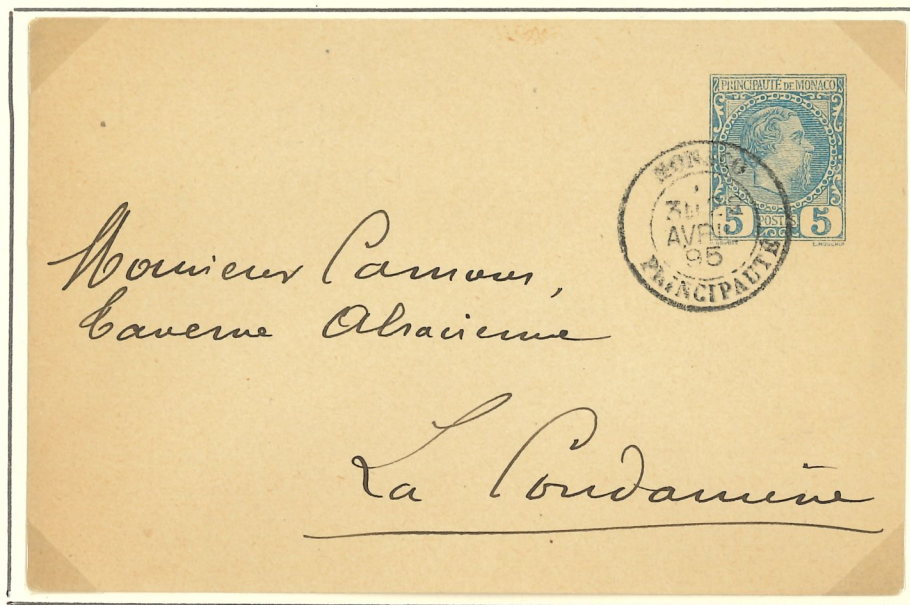 PRINCIPAUTÉ DE MONACO
5 POSTES 5
MONACO
AVRIL
95
PRINCIPAUTE
Monsieur Camous,
Taverne Alsacienne
La Condamine